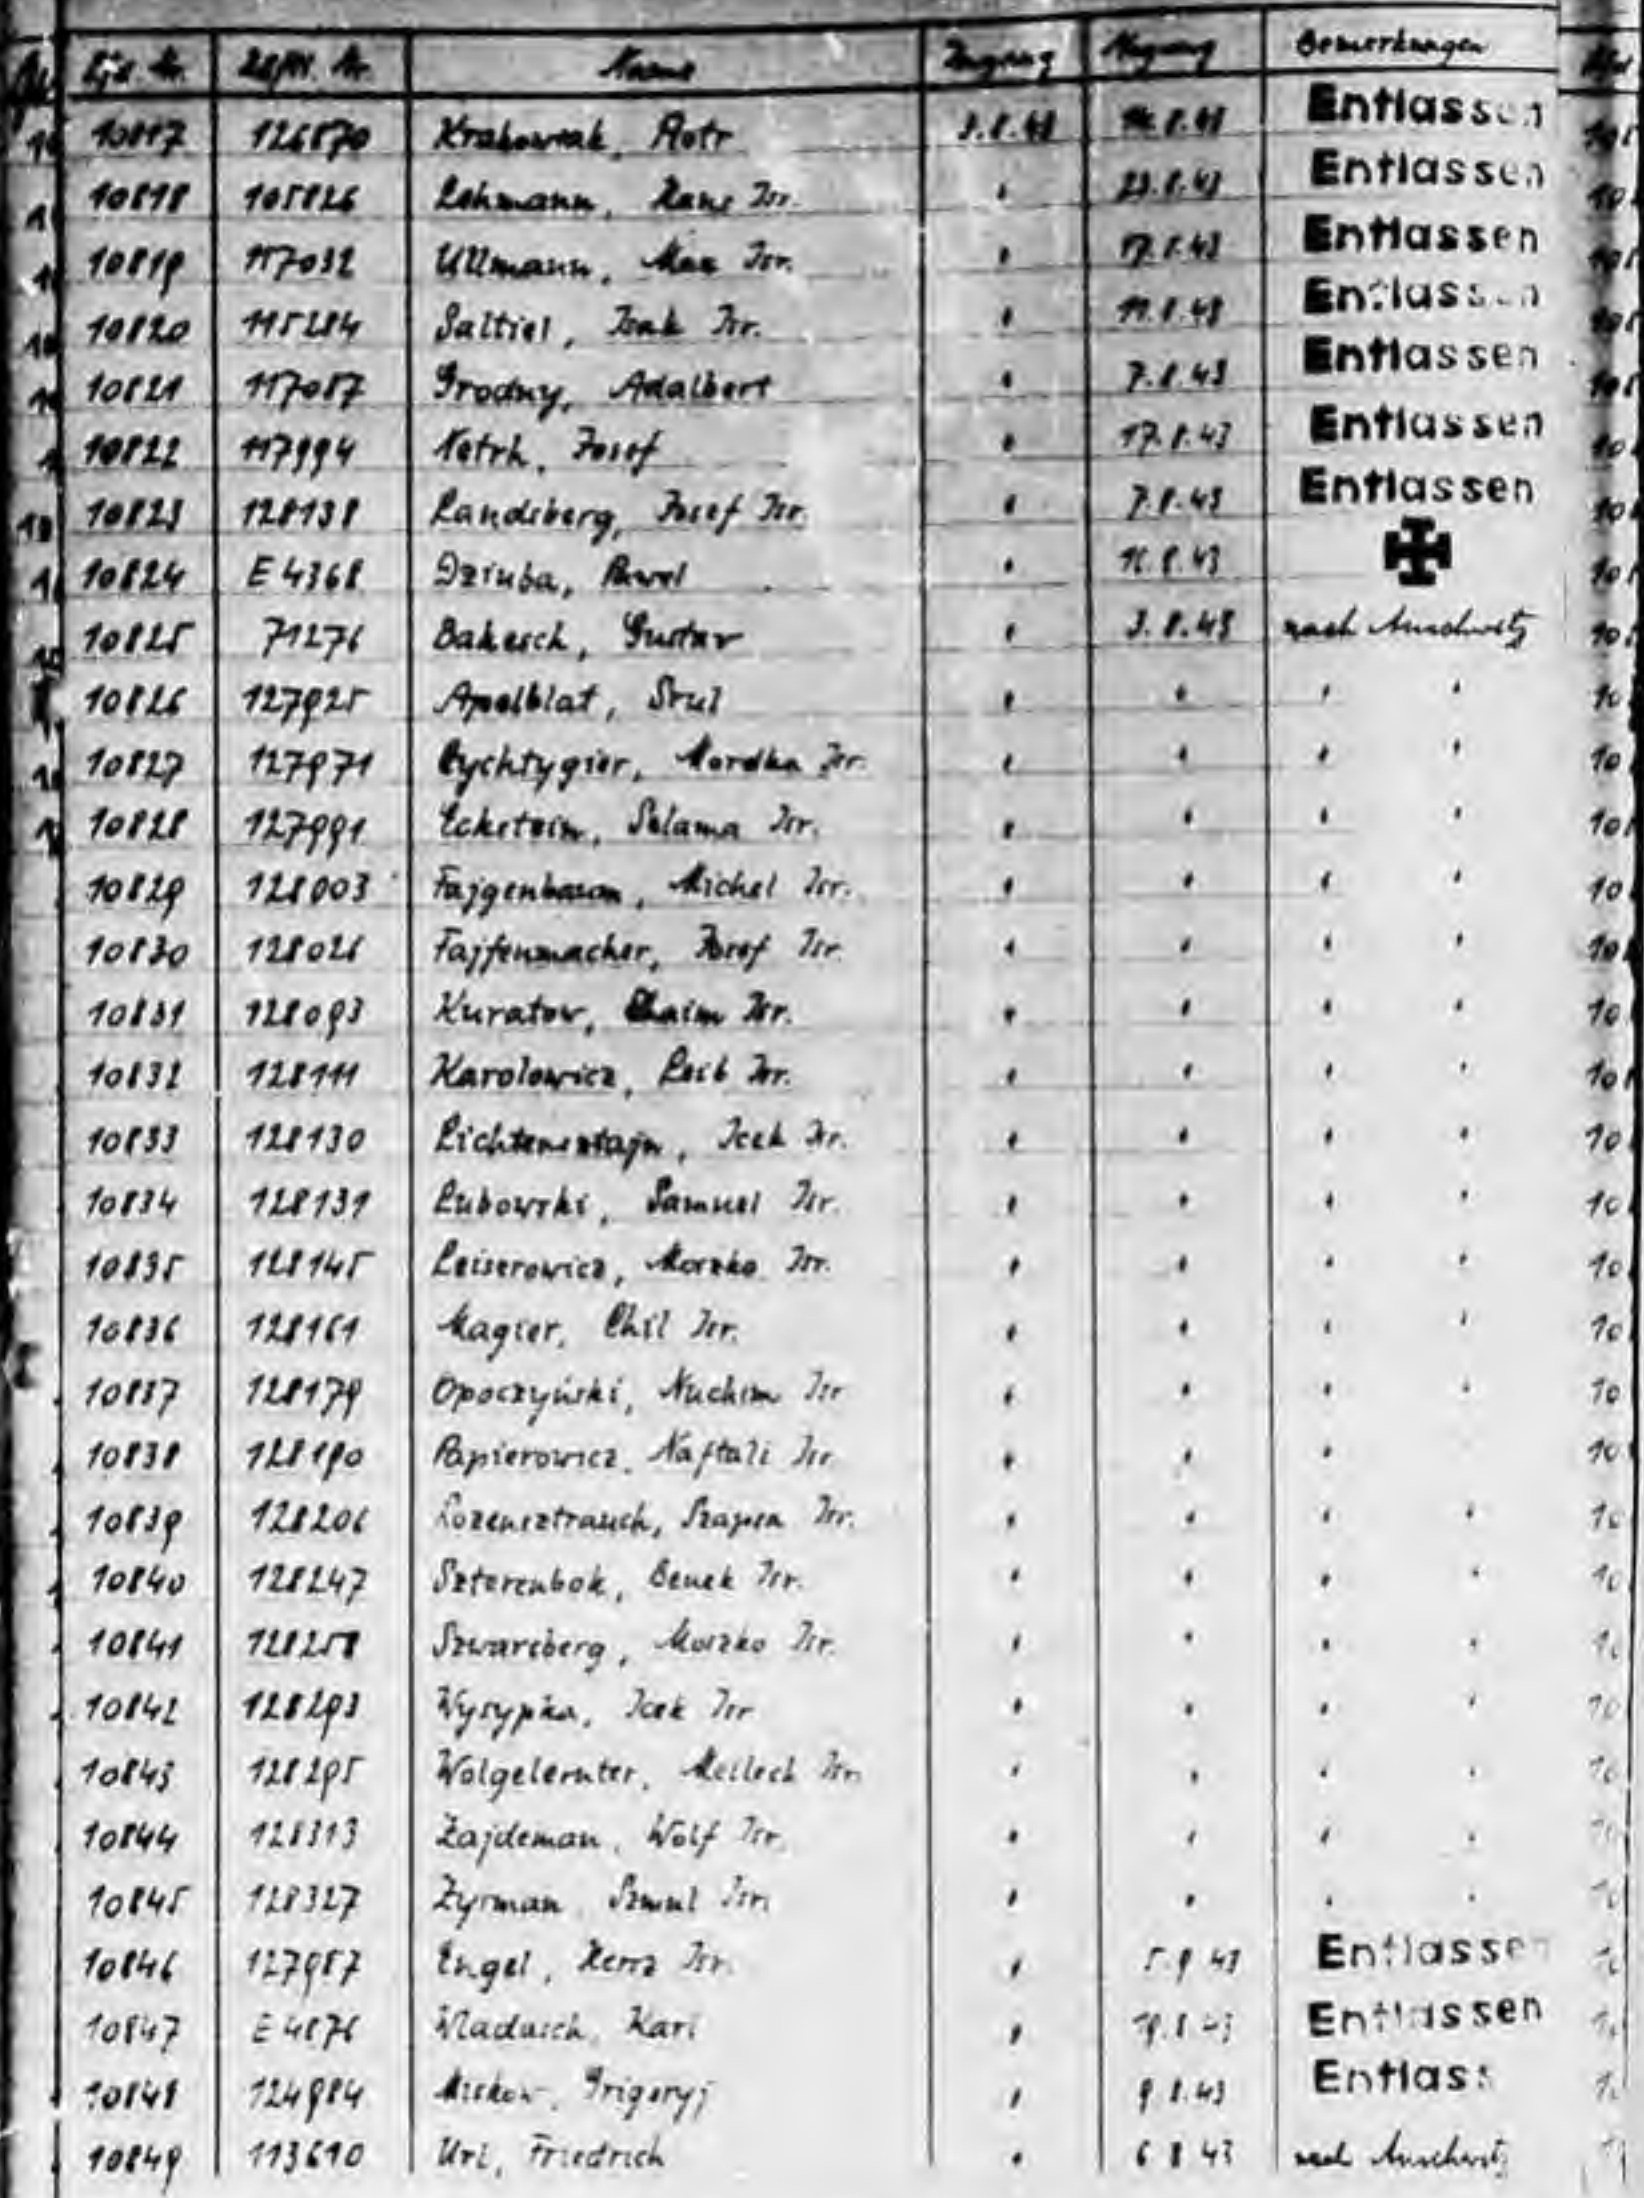 Lfd. Nr. Häftl. Nr. Name Zugang Abgang Bemerkungen
10817 126870 Krakowiak, Piotr 3.8.43 14.8.43 Entlassen
10818 105826 Lehmann, Hans Isr. " 23.8.43 Entlassen
10819 117032 Ullmann, Max Isr. " 17.8.43 Entlassen
10820 115284 Saltiel, Isak Isr. " 11.8.43 Entlassen
10821 117087 Grodny, Adalbert " 7.8.43 Entlassen
10822 117994 Netrh, Josef " 17.8.43 Entlassen
10823 128138 Landsberg, Josef Isr. " 7.8.43 Entlassen
10824 E 4368 Dziuba, Pawel " 16.8.43
10825 71276 Bakesch, Gustav " 3.8.43 nach Auschwitz
10826 127925 Apelblat, Srul " " " "
10827 127971 Cychtygier, Mordka Isr. " " " "
10828 127991 Eckstein, Salama Isr. " " " "
10829 128003 Fajgenbaum, Michel Isr. " " " "
10830 128026 Fajfenmacher, Josef Isr. " " " "
10831 128093 Kuratow, Chaim Isr. " " " "
10832 128111 Karolowicz, Leib Isr. " " " "
10833 128130 Lichtensztajn, Icek Isr. " " " "
10834 128131 Lubowski, Samuel Isr. " " " "
10835 128145 Leiserowicz, Moszko Isr. " " " "
10836 128161 Magier, Chil Isr. " " " "
10837 128179 Opoczyński, Nuchim Isr " " " "
10838 128190 Papierowicz, Naftali Isr " " "
10839 128206 Rozensztrauch, Szapsa Isr. " " " "
10840 128247 Szterenbok, Benek Isr. " " " "
10841 128258 Szwarcberg, Moszko Isr. " " " "
10842 128293 Wysypka, Icek Isr " " " "
10843 128295 Wolgelernter, Meilech Isr. " " " "
10844 128313 Zajdeman, Wolf Isr. " " " "
10845 128327 Zyrman, Szmul Isr. " " " "
10846 127987 Engel, Hersz Isr. " 5.9.43 Entlassen
10847 E 4876 Wladasch, Karl " 19.8.43 Entlassen
10848 124984 Miskow, Grigoryj " 9.8.43 Entlass
10849 113610 Uri, Friedrich " 6.8.43 nach Auschwitz